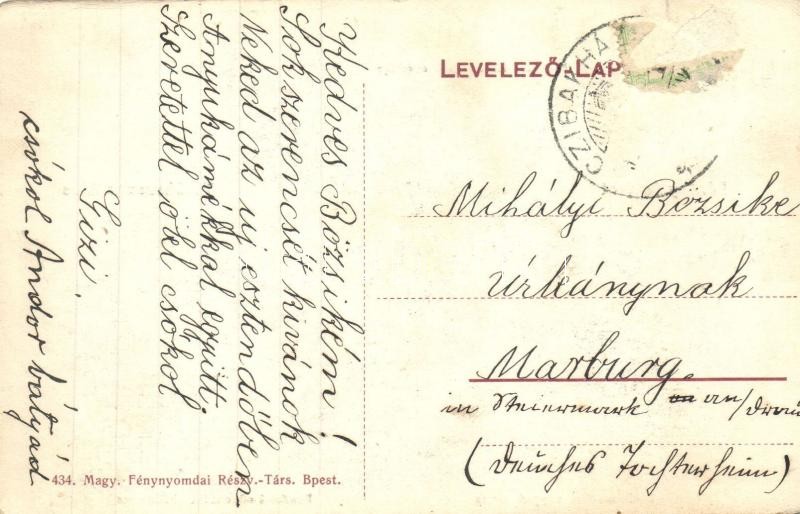 LEVELEZŐ-LAP
CZIBAKHÁ
Kedves Bözsikém!
Sok szerencsét kivánok
Neked az uj esztendőben
Anyukámékkal együtt.
Szeretettel ölel csókol
Gizi.
csókol Andor bátyád
Mihályi Bözsike
Úrleánynak
Marburg.
in Steiermark an/Drau
(Deutsches Tochterheim)
434. Magy. Fénynyomdai Részv.-Társ. Bpest.